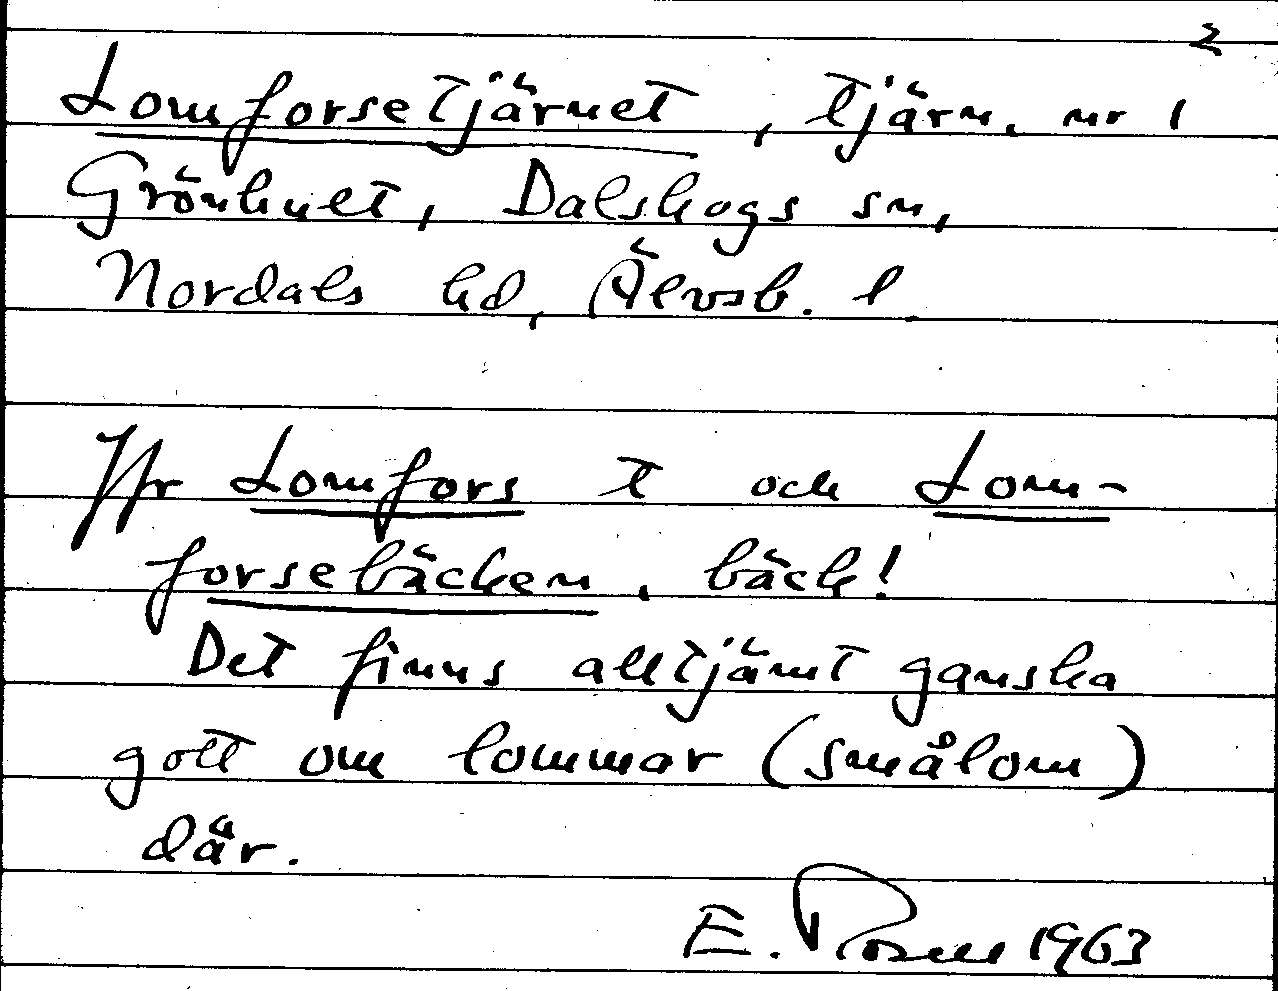 2
Lomforsetjärnet, tjärn. nr 1
Grönhult, Dalskogs sn,
Nordals hd, Älvsb. l.
Jfr Lomfors t och Lom-
forsebäcken, bäck!
Det finns alltjämt ganska
gott om lommar (smålom)
där.
E. 1963